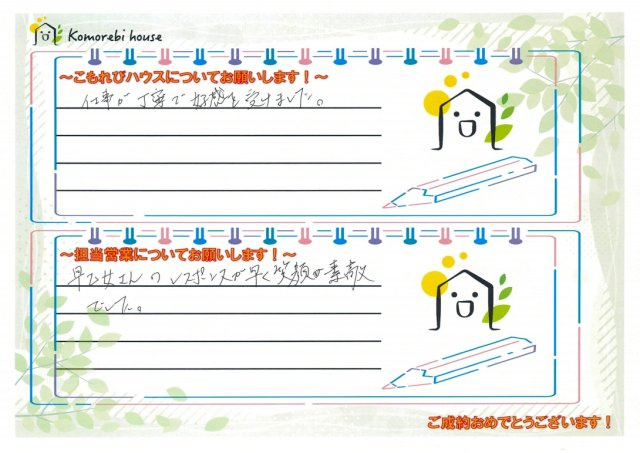 Komorebi house
～こもれびハウスについてお願いします！～
仕事が丁寧で好感を受けました。
～担当営業についてお願いします！～
早乙女さんのレスポンスが早く笑顔が素敵
でした。
ご成約おめでとうございます！